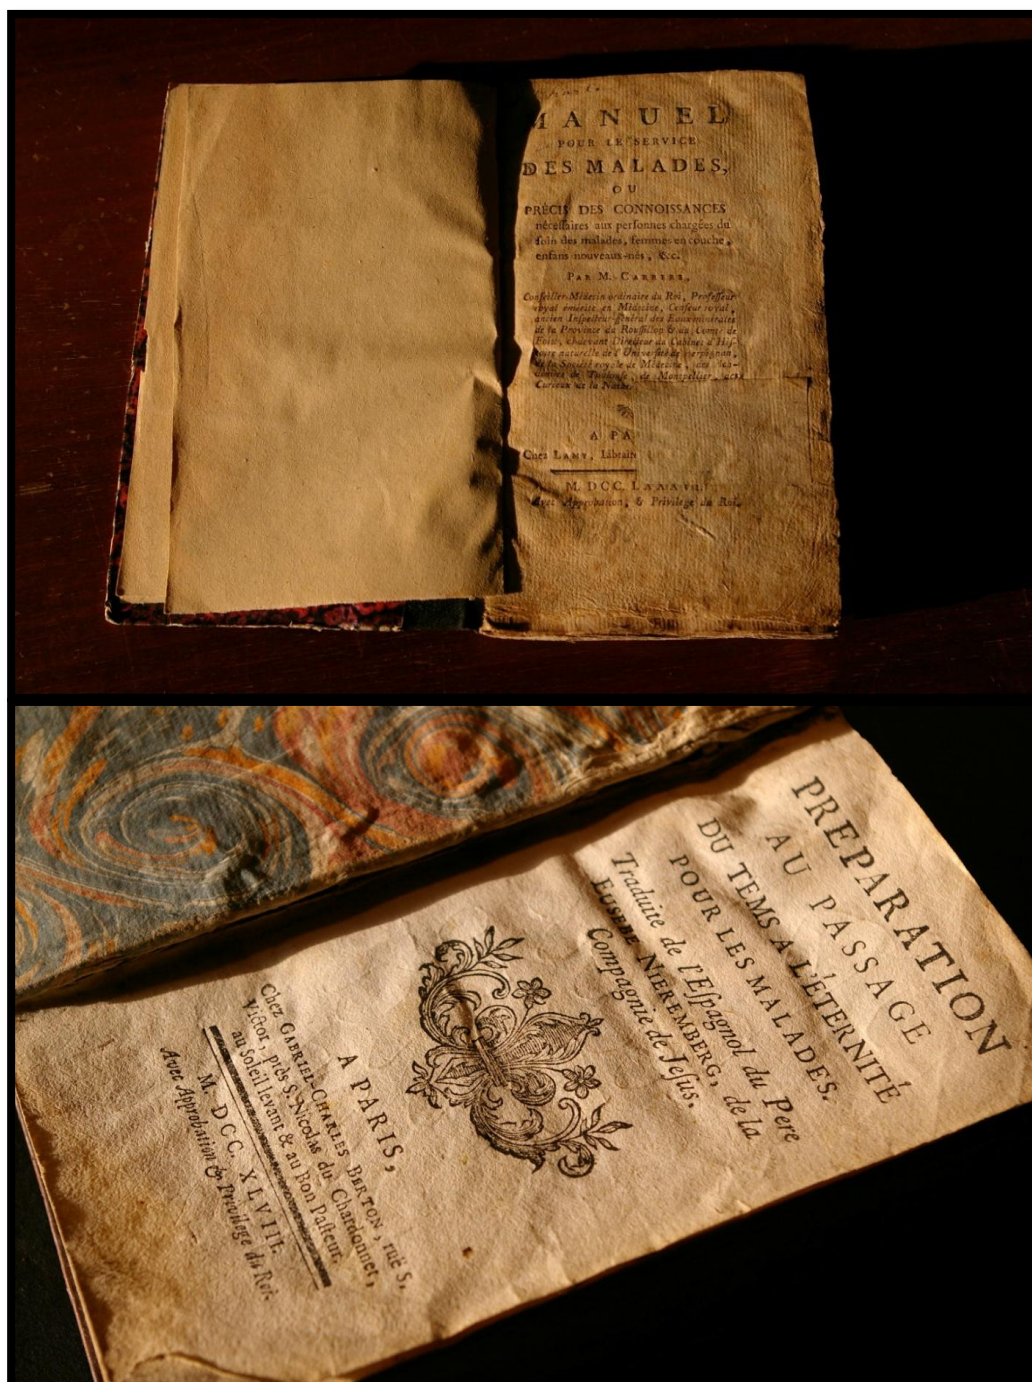 MANUEL
POUR LE SERVICE
DES MALADES,
OU
PRÉCIS DES CONNOISSANCES
nécessaires aux personnes chargées du
soin des malades, femmes en couche,
enfans nouveaux-nés, &c.
PAR M. CARRERE,
Conseiller-Médecin ordinaire du Roi, Professeur
royal émérite en Médecine, Censeur royal,
ancien Inspecteur-général des Eaux minérales
de la Province du Roussillon & du Comté de
Foix, ci-devant Directeur du Cabinet d'His-
toire naturelle de l'Université de Perpignan,
de la Société royale de Médecine, des
de Toulouse, de Montpellier,
Curieux de la
A PA
Chez LAMY, Librair
M. DCC.
Avec Approbation, & Privilege du Roi.
PREPARATION
AU PASSAGE
DU TEMS A L'ÉTERNITÉ
POUR LES MALADES.
Traduite de l'Espagnol du Pere
EUSEBE NIEREMBERG, de la
Compagnie de Jesus.
A PARIS,
Chez GABRIEL-CHARLES BERTON, ruë S.
Victor, près S. Nicolas du Chardonnet,
au Soleil levant & au Bon Pasteur.
M. DCC. XLVIII.
Avec Approbation & Privilege du Roi.